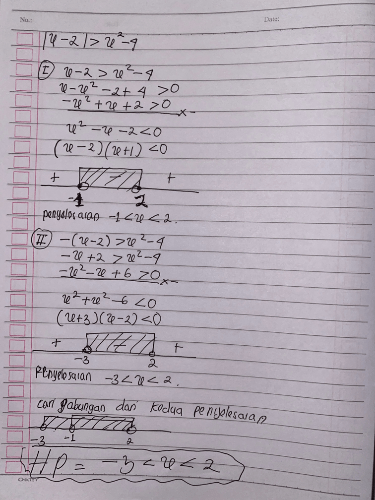 No.:
Date:
|x-2| > x²-4
I x-2 > x²-4
x-x²-2+4 > 0
-x²+x+2 > 0 x-
x²-x-2 < 0
(x-2)(x+1) < 0
+ - +
-1 2
penyelesaian -1 < x < 2.
II -(x-2) > x²-4
-x+2 > x²-4
-x²-x+6 > 0 x-
x²+x²-6 < 0
(x+3)(x-2) < 0
+ - +
-3 2
Penyelesaian -3 < x < 2.
cari gabungan dari kedua penyelesaian
-3 -1 2
HP = -3 < x < 2